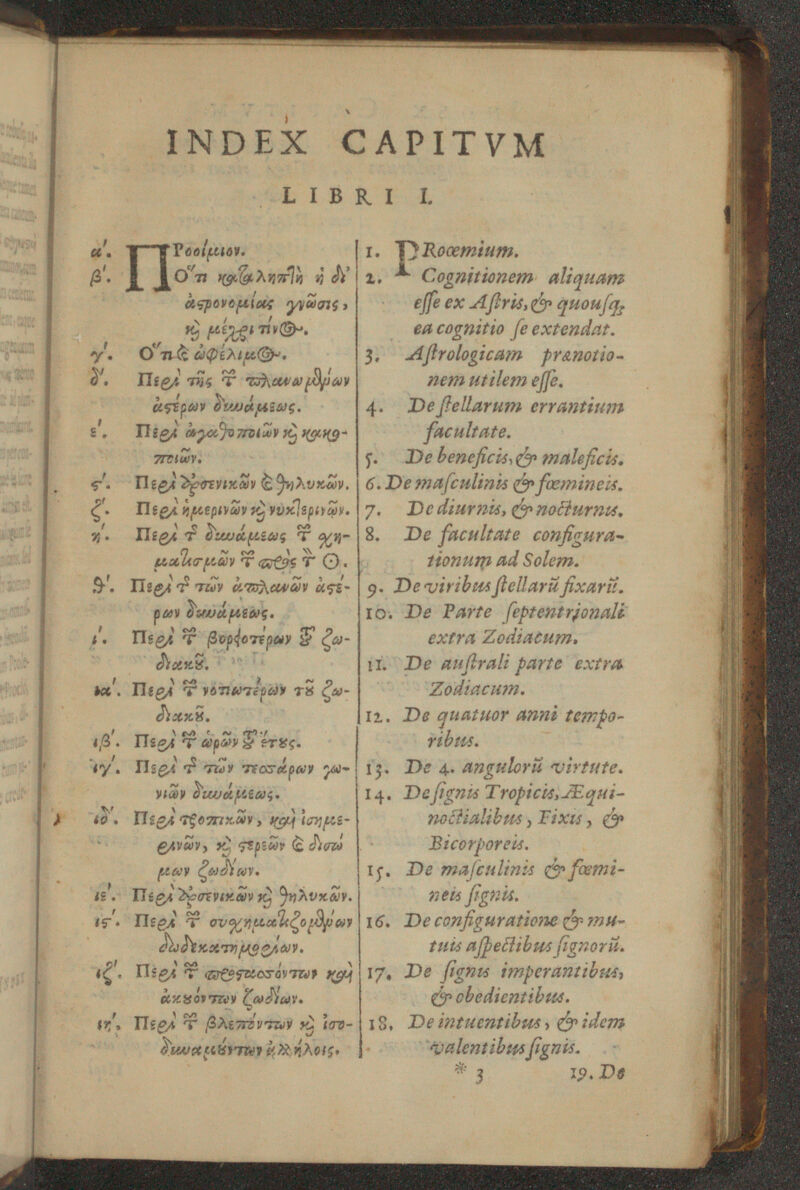 INDEX CAPITVM
LIBRI I.
α΄. ΠΡοοίμιον.
β΄. Ὅτι καταληπτὴ ἡ δι᾽
ἀστρονομίας γνῶσις,
καὶ μέχρι τίνος.
γ΄. Ὅτι καὶ ὠφέλιμος.
δ΄. Περὶ τῆς τῶν πλανωμένων
ἀστέρων δυνάμεως.
ε΄. Περὶ ἀγαθοποιῶν καὶ κακο-
ποιῶν.
ϛ΄. Περὶ ἀρσενικῶν καὶ θηλυκῶν.
ζ΄. Περὶ ἡμερινῶν καὶ νυκτερινῶν.
η΄. Περὶ τῆς δυνάμεως τῶν σχη-
ματισμῶν τῶν πρὸς τὸν ☉.
θ΄. Περὶ τῆς τῶν ἀπλανῶν ἀστέ-
ρων δυνάμεως.
ι΄. Περὶ τῶν βορειοτέρων τοῦ ζω-
διακοῦ.
ια΄. Περὶ τῶν νοτιωτέρων τοῦ ζω-
διακοῦ.
ιβ΄. Περὶ τῶν ὡρῶν τοῦ ἔτους.
ιγ΄. Περὶ τῆς τῶν τεσσάρων γω-
νιῶν δυνάμεως.
ιδ΄. Περὶ τροπικῶν, καὶ ἰσημε-
ρινῶν, καὶ στερεῶν καὶ δισώ
μων ζωδίων.
ιε΄. Περὶ ἀρσενικῶν καὶ θηλυκῶν.
ιϛ΄. Περὶ τῶν συσχηματιζομένων
δωδεκατημορίων.
ιζ΄. Περὶ τῶν προστασσόντων καὶ
ἀκουόντων ζωδίων.
ιη΄. Περὶ τῶν βλεπόντων καὶ ἰσο-
δυναμούντων ἀλλήλοις.
1. PRoœmium.
2. Cognitionem aliquam
eſſe ex Aſtris, & quouſq;
ea cognitio ſe extendat.
3. Aſtrologicam prænotio-
nem utilem eſſe.
4. De ſtellarum errantium
facultate.
5. De beneficis, & maleficis.
6. De maſculinis & fœmineis.
7. De diurnis, & nocturnis.
8. De facultate configura-
tionum ad Solem.
9. De viribus ſtellarū fixarū.
10. De Parte ſeptentrionali
extra Zodiacum.
11. De auſtrali parte extra
Zodiacum.
12. De quatuor anni tempo-
ribus.
13. De 4. angulorū virtute.
14. De ſignis Tropicis, Æqui-
noctialibus, Fixis, &
Bicorporeis.
15. De maſculinis & fœmi-
neis ſignis.
16. De configuratione & mu-
tuis aſpectibus ſignorū.
17. De ſignis imperantibus,
& obedientibus.
18. De intuentibus, & idem
valentibus ſignis.
* 3 19. De